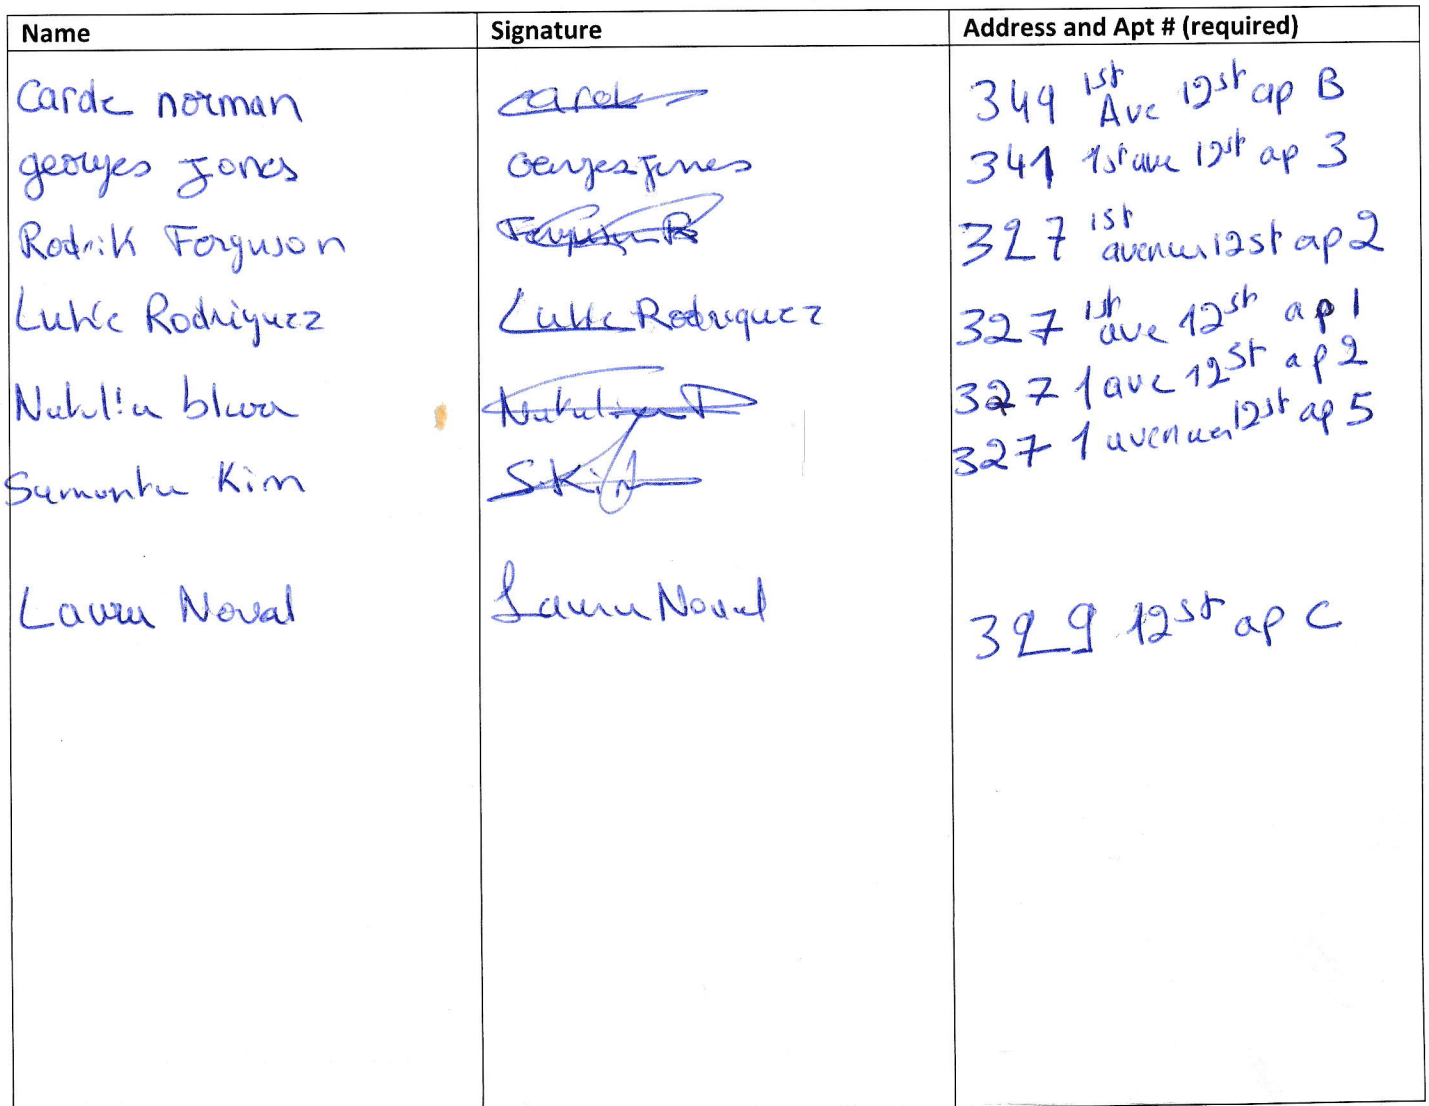 Name Signature Address and Apt # (required)
Carole norman Carole 349 1st Ave 12st ap B
georges Jones Georges Jones 341 1st ave 12st ap 3
Rodrik Ferguson Ferguson R 327 1st avenue 12st ap 2
Rodriguez Rodriguez 327 1st ave 12st ap 1
327 1 ave 12st ap 2
Kim S Kim 327 1 avenue 12st ap 5
Laura Noval Laura Noval 329 12st ap C